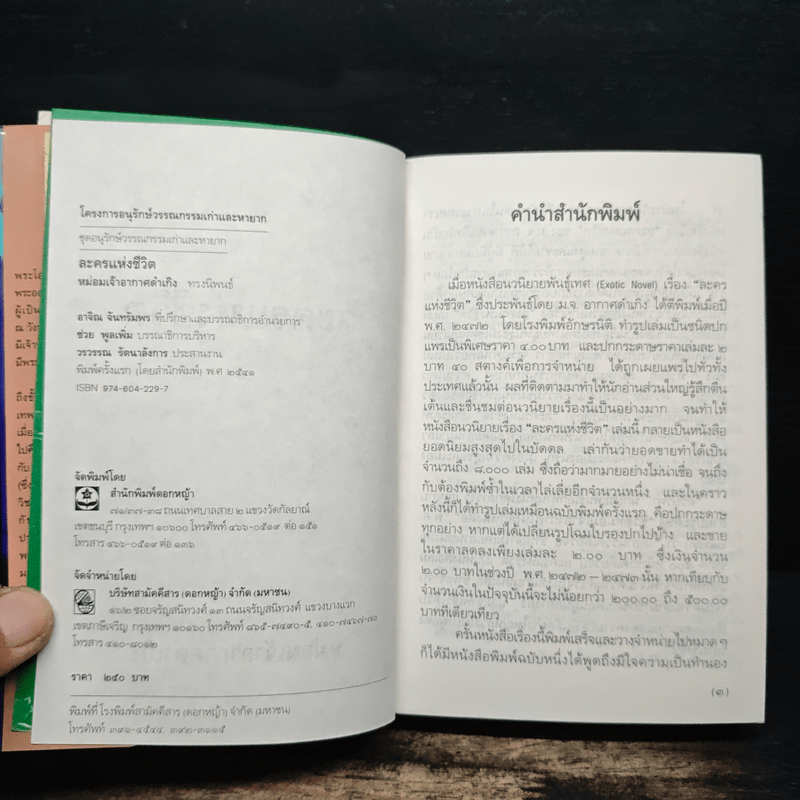 โครงการอนุรักษ์วรรณกรรมเก่าและหายาก
ชุดอนุรักษ์วรรณกรรมเก่าและหายาก
ละครแห่งชีวิต
หม่อมเจ้าอากาศดำเกิง ทรงนิพนธ์
อาจิณ จันทรัมพร ที่ปรึกษาและบรรณาธิการอำนวยการ
ช่วย พูลเพิ่ม บรรณาธิการบริหาร
วรวรรณ รัตนาลังการ ประสานงาน
พิมพ์ครั้งแรก (โดยสำนักพิมพ์) พ.ศ ๒๕๔๑
ISBN 974-604-229-7
จัดพิมพ์โดย
สำนักพิมพ์ดอกหญ้า
๗๑/๓๗-๓๘ ถนนเทศบาลสาย ๒ แขวงวัดกัลยาณ์
เขตธนบุรี กรุงเทพฯ ๑๐๖๐๐ โทรศัพท์ ๔๖๖-๐๕๑๙ ต่อ ๑๕๑
โทรสาร ๔๖๖-๐๕๑๙ ต่อ ๑๓๖
จัดจำหน่ายโดย
บริษัทสามัคคีสาร (ดอกหญ้า) จำกัด (มหาชน)
๑๖/๒ ซอยจรัญสนิทวงศ์ ๑๓ ถนนจรัญสนิทวงศ์ แขวงบางแวก
เขตภาษีเจริญ กรุงเทพฯ ๑๐๑๖๐ โทรศัพท์ ๘๖๕-๗๔๙๐-๕, ๔๑๐-๗๔๖๗-๗๐
โทรสาร ๔๑๐-๘๐๑๒
ราคา ๒๕๐ บาท
พิมพ์ที่ โรงพิมพ์สามัคคีสาร (ดอกหญ้า) จำกัด (มหาชน)
โทรศัพท์ ๓๙๑-๔๕๔๔, ๓๙๒-๓๑๑๕
คำนำสำนักพิมพ์
เมื่อหนังสือนวนิยายพันธุ์เทศ (Exotic Novel) เรื่อง “ละคร
แห่งชีวิต” ซึ่งประพันธ์โดย ม.จ. อากาศดำเกิง ได้ตีพิมพ์เมื่อปี
พ.ศ. ๒๔๗๒ โดยโรงพิมพ์อักษรนิติ ทำรูปเล่มเป็นชนิดปก
แพรเป็นพิเศษราคา ๔.๐๐ บาท และปกกระดาษราคาเล่มละ ๒
บาท ๔๐ สตางค์เพื่อการจำหน่าย ได้ถูกเผยแพร่ไปทั่วทั้ง
ประเทศแล้วนั้น ผลที่ติดตามมาทำให้นักอ่านส่วนใหญ่รู้สึกตื่น
เต้นและชื่นชมต่อนวนิยายเรื่องนี้เป็นอย่างมาก จนทำให้
หนังสือนวนิยายเรื่อง “ละครแห่งชีวิต” เล่มนี้ กลายเป็นหนังสือ
ยอดนิยมสูงสุดไปในบัดดล เล่ากันว่ายอดขายทำได้เป็น
จำนวนถึง ๘,๐๐๐ เล่ม ซึ่งถือว่ามากมายอย่างไม่น่าเชื่อ จนถึง
กับต้องพิมพ์ซ้ำในเวลาไล่เลี่ยอีกจำนวนหนึ่ง และในคราว
หลังนี้ก็ได้ทำรูปเล่มเหมือนฉบับพิมพ์ครั้งแรก คือปกกระดาษ
ทุกอย่าง หากแต่ได้เปลี่ยนรูปโฉมใบรองปกไปบ้าง และขาย
ในราคาลดลงเพียงเล่มละ ๒.๐๐ บาท ซึ่งเงินจำนวน
๒.๐๐ บาทในช่วงปี พ.ศ. ๒๔๗๒ – ๒๔๗๓ นั้น หากเทียบกับ
จำนวนเงินในปัจจุบันนี้จะไม่น้อยกว่า ๒๐๐.๐๐ ถึง ๕๐๐.๐๐
บาททีเดียวเทียว
ครั้นหนังสือเรื่องนี้พิมพ์เสร็จและวางจำหน่ายไปหมาด ๆ
ก็ได้มีหนังสือพิมพ์ฉบับหนึ่งได้พูดถึงมีใจความเป็นทำนอง
(๓)